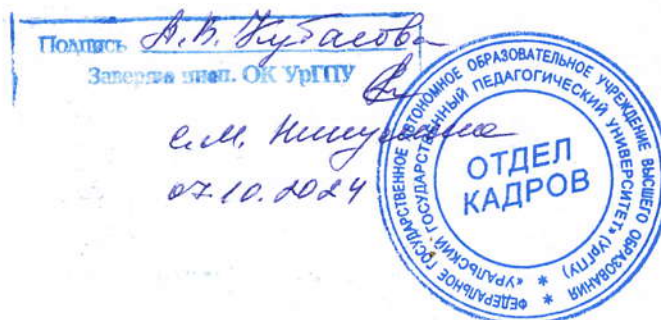 Подпись А.В. Кубасова
Заверяю инсп. ОК УрГПУ
07.10.2024
ФЕДЕРАЛЬНОЕ ГОСУДАРСТВЕННОЕ АВТОНОМНОЕ ОБРАЗОВАТЕЛЬНОЕ УЧРЕЖДЕНИЕ ВЫСШЕГО ОБРАЗОВАНИЯ *
«УРАЛЬСКИЙ ГОСУДАРСТВЕННЫЙ ПЕДАГОГИЧЕСКИЙ УНИВЕРСИТЕТ» (УрГПУ) *
ОТДЕЛ
КАДРОВ